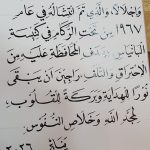 واجلالاً والذي تم انتشاله في عام
١٩٦٧ من تحت الركام في كنيسة
البانياس بهدف المحافظة عليه من
الاحتراق والتلف راجين أن يبقى
نوراً لهداية وبركة للقلوب
لمجد الله وخلاص النفوس.
٢٠٢٦